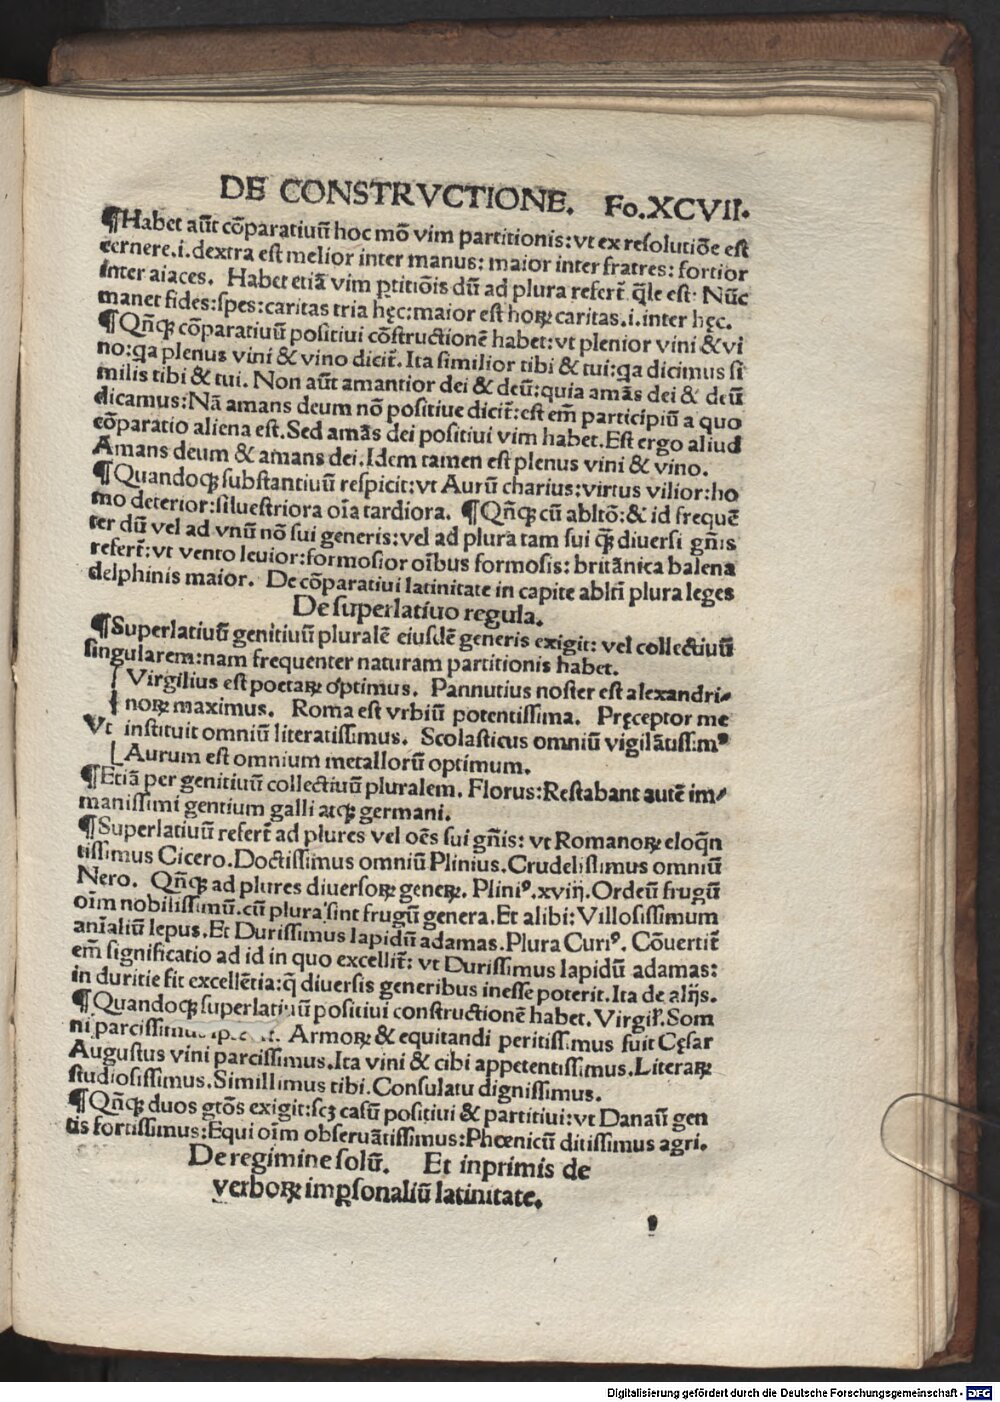 DE CONSTRVCTIONE. Fo.XCVII.
¶Habet aūt cōparatiuū hoc mō vim partitionis:vt ex resolutiōe est
cernere.i.dextra est melior inter manus: maior inter fratres: fortior
inter aiaces. Habet etiā vim ꝑtitiōis dū ad plura refert̃ q̄le est· Nūc
manet fides:spes:caritas tria hęc:maior est hoꝝ caritas.i.inter hęc.
¶Qñqꝫ cōparatiuū positiui cōstructionē habet:vt plenior vini & vi
no:qa plenus vini & vino dicit̃. Ita similior tibi & tui:qa dicimus si
milis tibi & tui. Non aūt amantior dei & deū:quia amās dei & deū
dicamus:Nā amans deum nō positiue dicit̃:est em̄ participiū a quo
cōparatio aliena est.Sed amās dei positiui vim habet.Est ergo aliud
Amans deum & amans dei.Idem tamen est plenus vini & vino.
¶Quandoqꝫ substantiuū respicit:vt Aurū charius:virtus vilior:ho
mo deterior:siluestriora oīa tardiora. ¶Qñqꝫ cū abltō:& id frequē
ter dū vel ad vnū nō sui generis:vel ad plura tam sui q̄ꝫ diuersi gñis
refert̃:vt vento leuior:formosior oībus formosis:britānica balena
delphinis maior. De cōparatiui latinitate in capite ablti plura leges
De superlatiuo regula.
¶Superlatiuū genitiuū pluralē eiusdē generis exigit: vel collectiuū
singularem:nam frequenter naturam partitionis habet.
Virgilius est poetaꝝ optimus. Pannutius noster est alexandri-
noꝝ maximus. Roma est vrbiū potentissima. Pręceptor me
Vt instituit omniū literatissimus. Scolasticus omniū vigilātissimꝰ
Aurum est omnium metallorū optimum.
¶Etiā per genitiuū collectiuū pluralem. Florus:Restabant autē im-
manissimi gentium galli atqꝫ germani.
¶Superlatiuū refert̃ ad plures vel oēs sui gñis: vt Romanoꝝ eloq̄n
tissimus Cicero.Doctissimus omniū Plinius.Crudelissimus omniū
Nero. Qñqꝫ ad plures diuersoꝝ geneꝝ. Pliniꝰ.xviij.Ordeū frugū
oīm nobilissimū.cū plura sint frugū genera.Et alibi:Villosissimum
anīaliū lepus.Et Durissimus lapidū adamas.Plura Curiꝰ. Cōuertit̃
em̄ significatio ad id in quo excellit̃: vt Durissimus lapidū adamas:
in duritie fit excellētia:q̄ diuersis generibus inesse poterit.Ita de alijs.
¶Quandoqꝫ superlatiuū positiui constructionē habet. Virgil̃.Som
ni parcissimus Armoꝝ & equitandi peritissimus fuit Cęsar
Augustus vini parcissimus.Ita vini & cibi appetentissimus.Literaꝝ
studiosissimus.Simillimus tibi.Consulatu dignissimus.
¶Qñqꝫ duos gtōs exigit:scꝫ casū positiui & partitiui:vt Danaū gen
tis fortissimus:Equi oīm obseruātissimus:Phœnicū ditissimus agri.
De regimine solū. Et inprimis de
verboꝝ impsonaliū latinitate.
Digitalisierung gefördert durch die Deutsche Forschungsgemeinschaft - DFG